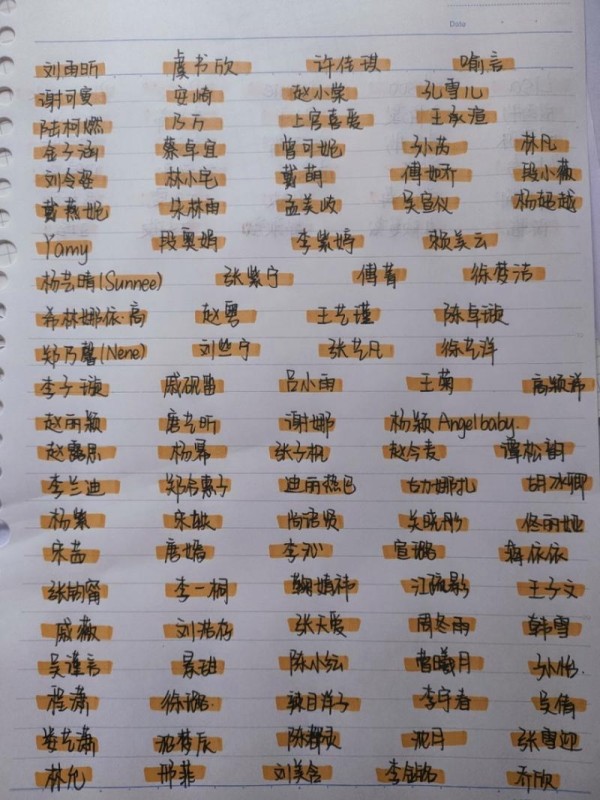 Date
刘雨昕 虞书欣 许佳琪 喻言
谢可寅 安崎 赵小棠 孔雪儿
陆柯燃 乃万 上官喜爱 王承渲
金子涵 蔡卓宜 曾可妮 孙芮 林凡
刘令姿 林小宅 戴萌 傅如乔 段小薇
戴燕妮 朱林雨 孟美岐 吴宣仪 杨超越
Yamy 段奥娟 李紫婷 赖美云
杨芸晴(Sunnee) 张紫宁 傅菁 徐梦洁
希林娜依·高 赵粤 王艺瑾 陈卓璇
郑乃馨(Nene) 刘些宁 张艺凡 徐艺洋
李子璇 戚砚笛 吕小雨 王菊 高颖浠
赵丽颖 唐艺昕 谢娜 杨颖 Angelbaby.
赵露思 杨幂 张子枫 赵今麦 谭松韵
李兰迪 郑合惠子 迪丽热巴 古力娜扎 胡冰卿
杨紫 宋轶 尚语贤 关晓彤 佟丽娅
宋茜 唐嫣 李沁 宣璐 蒋依依
张钧甯 李一桐 鞠婧祎 江疏影 王子文
戚薇 刘浩存 张天爱 周冬雨 韩雪
吴谨言 景甜 陈小纭 曾曦月 孙怡
程潇 徐璐 辣目洋子 李宇春 吴倩
娄艺潇 沈梦辰 陈都灵 沈月 张雪迎
林允 邢菲 刘美含 李金铭 乔欣